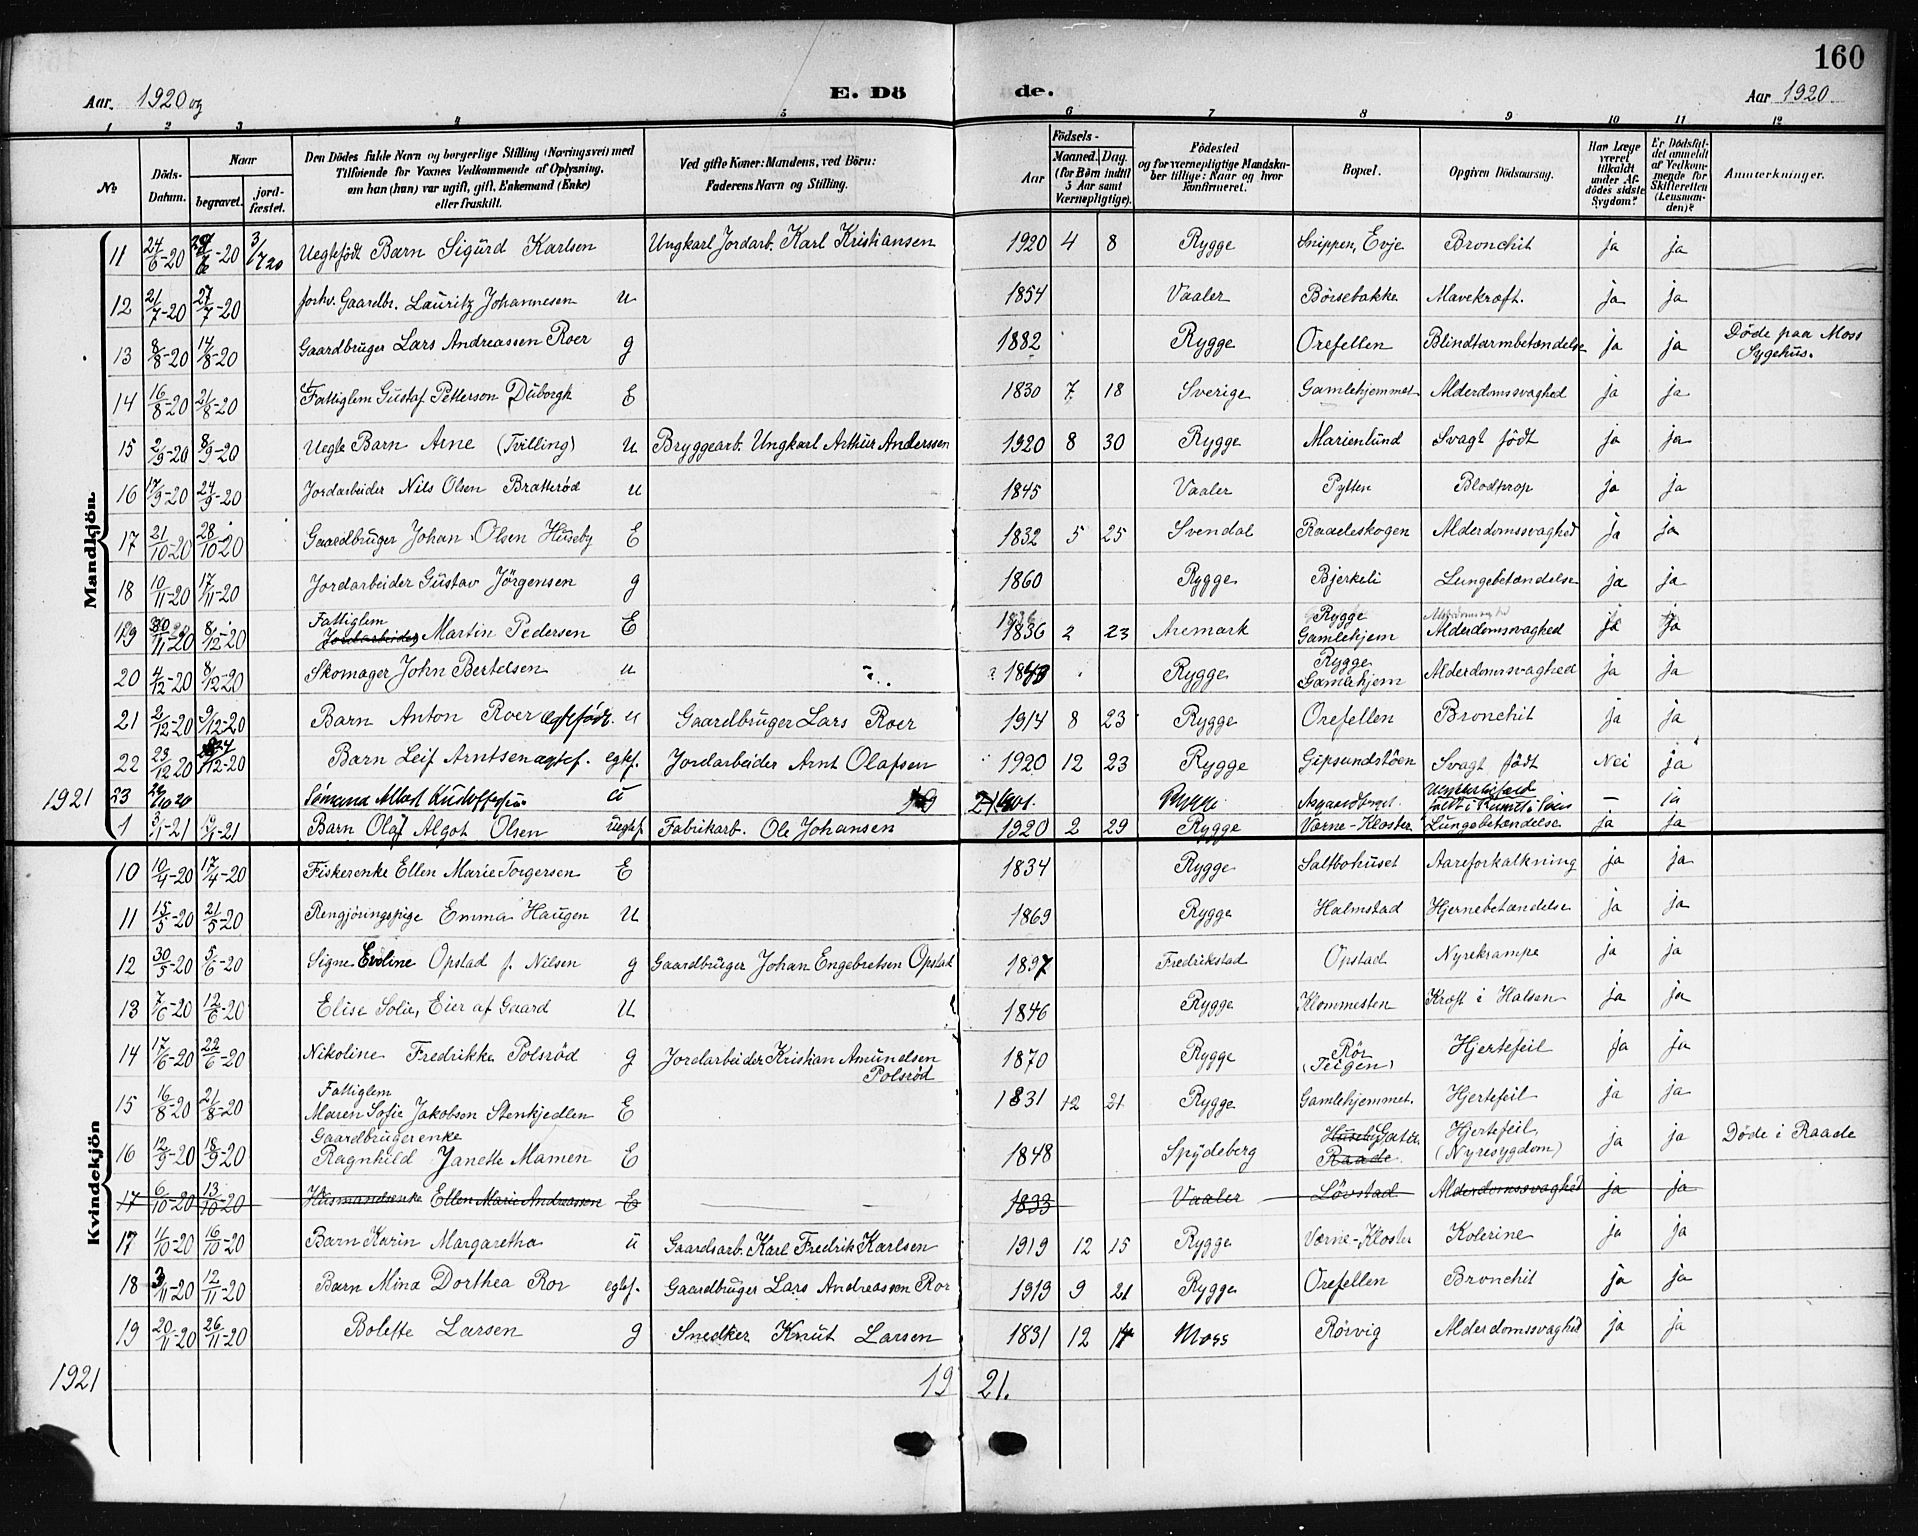 160
Aar. 1920 og E. Dö de. Aar 1920
1 2 3 4 5 6 7 8 9 10 11 12
No
Döds-Datum.
Naar
begravet.
jord-fæstet.
Den Dödes fulde Navn og borgerlige Stilling (Næringsvei) med
Tilföiende for Voxnes Vedkommende af Oplysning,
om han (hun) var ugift, gift, Enkemand (Enke)
eller fraskilt.
Ved gifte Koner: Mandens, ved Börn:
Faderens Navn og Stilling.
Födsels-
Aar
Maaned. Dag.
(for Börn indtil
5 Aar samt
Værnepligtige).
Födested
og for værnepligtige Mandska-
ber tillige: Naar og hvor
konfirmeret.
Bopæl.
Opgiven Dödsaarsag.
Har Læge
været
tilkaldt
under Af-
dödes sidste
Sygdom?
Er Dödsfal-
det anmeldt
af Vedkom-
mende for
Skifteretten
(Lensman-
den)?
Anmærkninger.
Mandkjön
11 24/6-20 3/7 20 Uegtefödt Barn Sigurd Karlsen Ungkarl Jordarb. Karl Kristiansen 1920 4 8 Rygge Snippen, Evje Bronchit ja ja
12 21/7-20 27/7-20 forhv. Gaardbr. Lauritz Johannesen u 1854 Vaaler Börsebakke Mavekræft. ja ja
13 8/8-20 14/8-20 Gaardbruger Lars Andreassen Roer g 1882 Rygge Orefellen Blindtarmbetændelse ja ja Döde paa Moss
Sygehus.
14 16/8-20 21/8-20 Fattiglem Gustaf Petterson Duborgh E 1830 7 18 Sverige Gamlehjemmet Alderdomssvaghed ja ja
15 2/9-20 8/9-20 Uegte Barn Arne (Tvilling) u Bryggearb. Ungkarl Arthur Anderssen 1920 8 30 Rygge Marienlund Svagt födt ja ja
16 17/9-20 24/9-20 Jordarbeider Nils Olsen Bratteröd u 1845 Vaaler Pytten Blodprop ja ja
17 21/10-20 28/10-20 Gaardbruger Johan Olsen Huseby E 1832 5 25 Svendal Raadeskogen Alderdomssvaghed ja ja
18 10/11-20 17/11-20 Jordarbeider Gustav Jörgensen g 1860 Rygge Bjerkeli Lungebetændelse ja ja
Fattiglem 1836 Rygge
19 30/11-20 8/12-20 Jordarbeider Martin Pedersen E 1836 2 23 Aremark Gamlehjem Alderdomssvaghed ja ja
Rygge
20 4/12-20 8/12-20 Skomager John Bertelsen u Rygge Gamlehjem Alderdomssvaghed ja ja
21 2/12-20 9/12-20 Barn Anton Roer egtefödt. u Gaardbruger Lars Roer 1914 8 23 Rygge Orefellen Bronchit ja ja
22 23/12 20 Barn Leif Arntsen egtef. egtef. Jordarbeider Arnt Olafsen 1920 12 23 Rygge Gipsundstöen Svagt födt Nei ja
1921 23 Sömand u Rygge – ja
1 3/1-21 Barn Olaf Algot Olsen uegtef. Fabrikarb. Ole Johansen 1920 2 29 Rygge Værne-Kloster Lungebetændelse ja ja
Kvindekjön
10 10/4-20 17/4-20 Fiskerenke Ellen Marie Torgersen E 1834 Rygge Saltbohuset Aareforkalkning ja ja
11 15/5-20 21/5-20 Rengjöringspige Emma Haugen u 1869 Rygge Halmstad Hjernebetændelse ja ja
12 30/5-20 5/6-20 Signe Eveline Opstad f. Nilsen g Gaardbruger Johan Engebretsen Opstad 1897 Fredrikstad Opstad Nyrekrampe ja ja
13 7/6-20 12/6-20 Elise Solie, Eier af Gaard u 1846 Rygge Klommesten Kræft i Halsen ja ja
14 17/6-20 22/6-20 Nikoline Fredrikke Polsröd g Jordarbeider Kristian Amundsen
Polsröd 1870 Rygge Rör
(Teigen) Hjertefeil ja ja
Fattiglem
15 16/8-20 21/8-20 Maren Sofie Jakobson Stenkjedlen E 1831 12 21 Rygge Gamlehjemmet. Hjertefeil ja ja
Gaardbrugerenke Huseby Hjertefeil
16 12/9-20 18/9-20 Ragnhild Janette Mamen E 1848 Spydeberg Raade (Nyresygdom) ja ja Döde i Raade
17 6/10-20 13/10-20 Husmandsenke Ellen Marie Andreassen E 1833 Vaaler Lövstad Alderdomssvaghed ja ja
17 16/10-20 Barn Karin Margaretha u Gaardsarb. Karl Fredrik Karlsen 1919 12 15 Rygge Værne-Kloster Kolerine ja ja
18 3/11-20 12/11-20 Barn Mina Dorthea Ror egtef. Gaardbruger Lars Andreassen Ror 1919 9 21 Rygge Orefellen Bronchit ja ja
19 20/11-20 26/11-20 Bolette Larsen g Snedker Knut Larsen 1831 12 14 Moss Rörvig Alderdomssvaghed ja ja
1921 19 21.